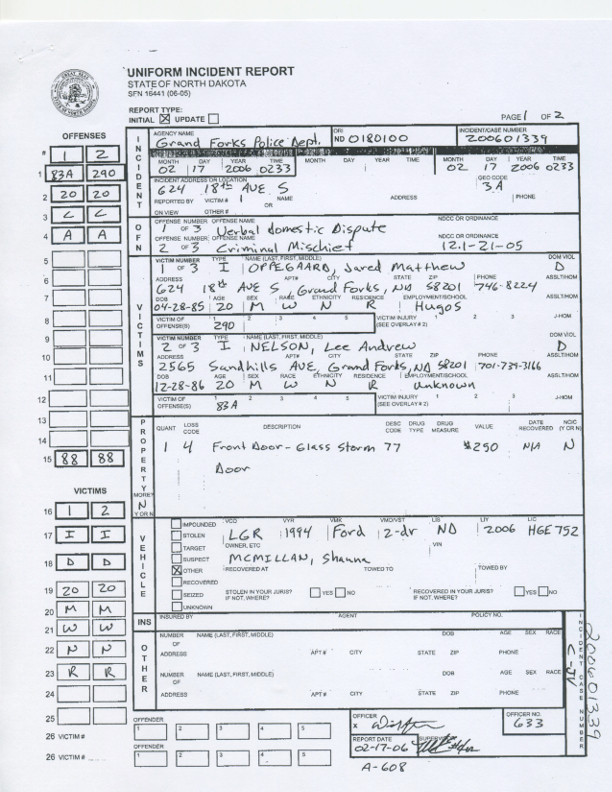 UNIFORM INCIDENT REPORT
STATE OF NORTH DAKOTA
SFN 16441 (06-05)
REPORT TYPE:
INITIAL ☒ UPDATE ☐
PAGE 1 OF 2
OFFENSES
AGENCY NAME ORI INCIDENT/CASE NUMBER
Grand Forks Police Dept. ND 0180100 200601339
MONTH DAY YEAR TIME MONTH DAY YEAR TIME MONTH DAY YEAR TIME
02 17 2006 0233 02 17 2006 0233
INCIDENT ADDRESS OR LOCATION GEO CODE
624 18th AVE S 3A
REPORTED BY VICTIM # 1 NAME ADDRESS PHONE
OR
ON VIEW OTHER #
INCIDENT
OFFENSE NUMBER OFFENSE NAME NDCC OR ORDINANCE
1 OF 3 Verbal domestic Dispute
OFFENSE NUMBER OFFENSE NAME NDCC OR ORDINANCE
2 OF 3 Criminal Mischief 12.1-21-05
OFN
VICTIM NUMBER TYPE NAME (LAST, FIRST, MIDDLE) DOM VIOL
1 OF 3 I OPPEGAARD, Jared Matthew D
ADDRESS APT# CITY STATE ZIP PHONE ASSLT/HOM
624 18th AVE S, Grand Forks, ND 58201 746-8224
DOB AGE SEX RACE ETHNICITY RESIDENCE EMPLOYMENT/SCHOOL ASSLT/HOM
04-28-85 20 M W N R Hugos
VICTIM OF OFFENSE(S) 1 2 3 4 5 VICTIM INJURY (SEE OVERLAY # 2) 1 2 3 J-HOM
290
VICTIM NUMBER TYPE NAME (LAST, FIRST, MIDDLE) DOM VIOL
2 OF 3 I NELSON, Lee Andrew D
ADDRESS APT# CITY STATE ZIP PHONE ASSLT/HOM
2565 Sandhills AVE, Grand Forks, ND 58201 701-739-3166
DOB AGE SEX RACE ETHNICITY RESIDENCE EMPLOYMENT/SCHOOL ASSLT/HOM
12-28-86 20 M W N R unknown
VICTIM OF OFFENSE(S) 1 2 3 4 5 VICTIM INJURY (SEE OVERLAY # 2) 1 2 3 J-HOM
83A
VICTIMS
QUANT LOSS CODE DESCRIPTION DESC CODE DRUG TYPE DRUG MEASURE VALUE DATE RECOVERED NCIC (Y OR N)
1 4 Front Door-Glass Storm 77 $250 N/A N
Door
PROPERTY
MORE?
N
Y OR N
IMPOUNDED VCO VYR VMK VMO/VST LIS LIY LIC
STOLEN LGR 1994 Ford 2-dr ND 2006 HGE 752
TARGET OWNER, ETC VIN
SUSPECT MCMILLAN, Shauna
☒ OTHER RECOVERED AT TOWED TO TOWED BY
RECOVERED
SEIZED STOLEN IN YOUR JURIS? IF NOT, WHERE? YES NO RECOVERED IN YOUR JURIS? IF NOT, WHERE? YES NO
UNKNOWN
VEHICLE
INS INSURED BY AGENT POLICY NO.
NUMBER NAME (LAST, FIRST, MIDDLE) DOB AGE SEX RACE
OF
ADDRESS APT# CITY STATE ZIP PHONE
NUMBER NAME (LAST, FIRST, MIDDLE) DOB AGE SEX RACE
OF
ADDRESS APT# CITY STATE ZIP PHONE
OTHER
OFFICER OFFICER NO.
X 633
REPORT DATE SUPERVISOR
02-17-06
A-608
INCIDENT CASE NUMBER
200601339
C-JV
# 1 2
1 83A 290
2 20 20
3 C C
4 A A
5
6
7
8
9
10
11
12
13
14
15 88 88
VICTIMS
16 1 2
17 I I
18 D D
19 20 20
20 M M
21 W W
22 N N
23 R R
24
25
26 VICTIM #
26 VICTIM #
OFFENDER
1 2 3 4 5
OFFENDER
1 2 3 4 5